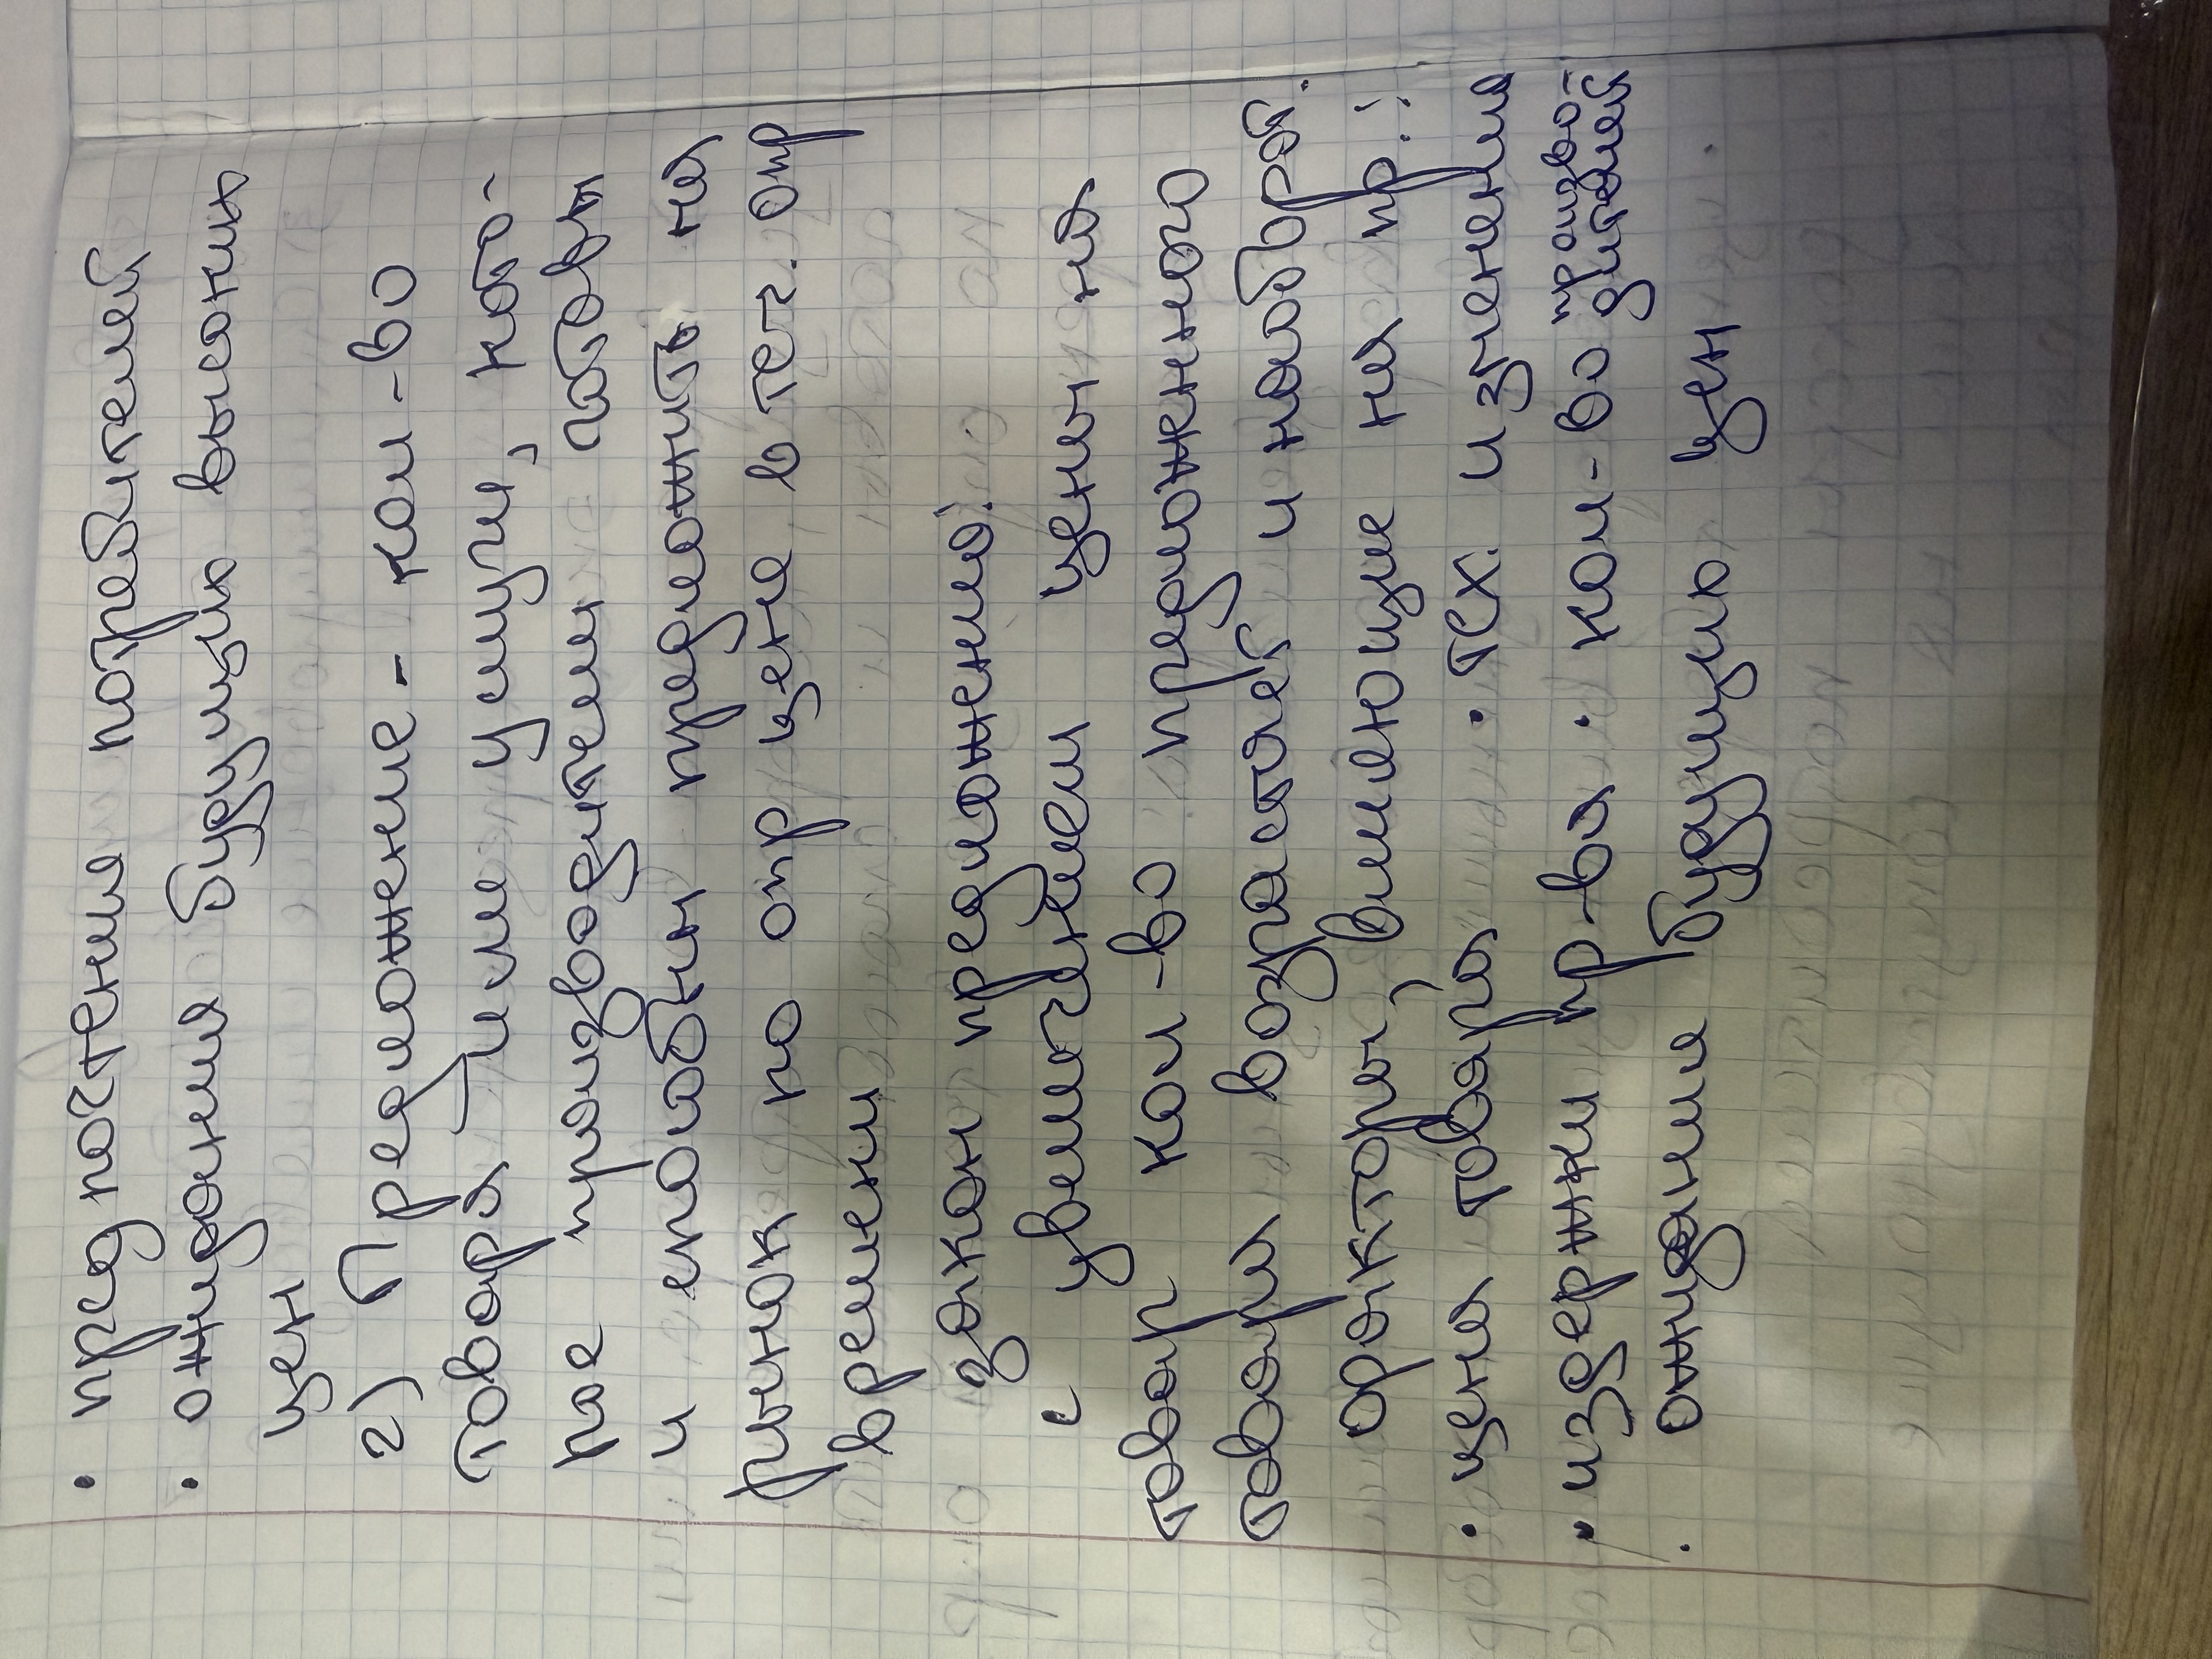 • предпочтения потребителей
• ожидания будущих высоких
цен
2) Предложение - кол-во
товара или услуги, кото-
рое производители готовы
и способны предложить на
рынок по опр цене в теч. опр
времени
закон предложения:
с увеличением цены на
товар кол-во предложенного
товара возрастает и наоборот.
факторы, влияющие на пр.:
• цена товара • тех. изменения
• издержки пр-ва • кол-во произво-
дителей
• ожидания будущих цен